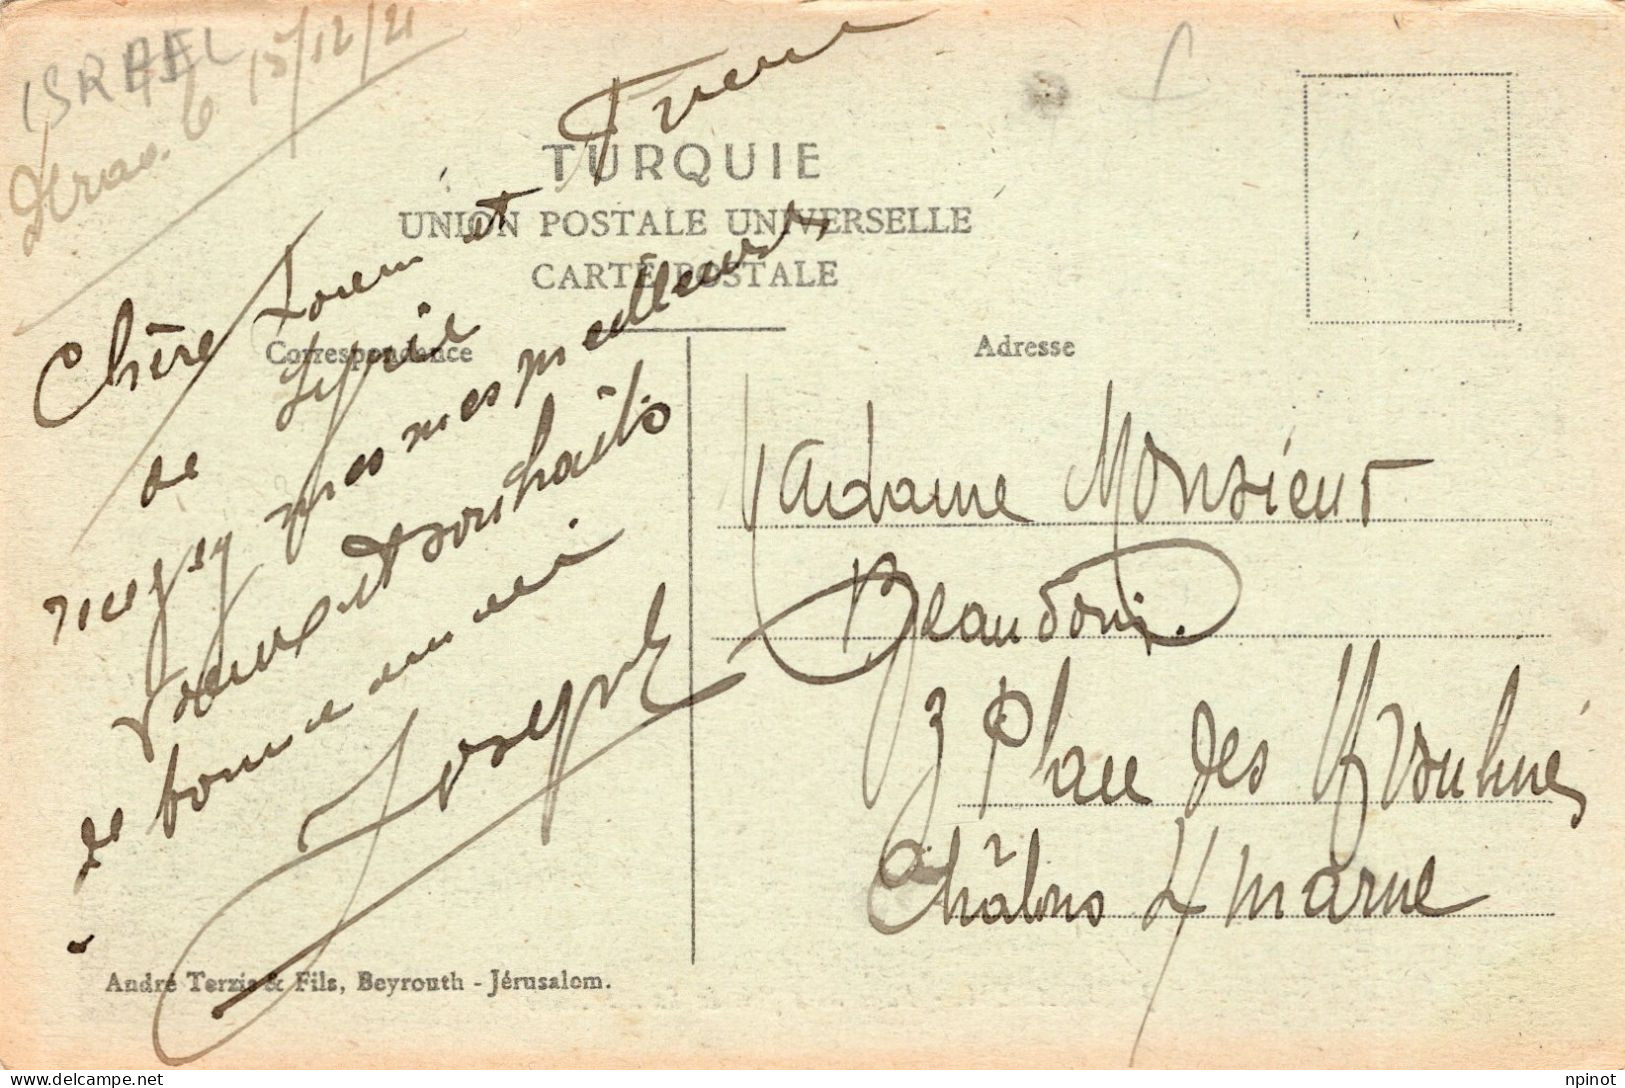 ISRAEL
15/12/21
TURQUIE
UNION POSTALE UNIVERSELLE
CARTE POSTALE
Correspondance
Chère Soeur et Frère
de Syrie
recevez mes mes meilleurs
voeux et souhaits
de bonne année
Joseph
André Terzis & Fils, Beyrouth - Jérusalem.
Adresse
Madame Monsieur
Beaudoin.
3 Place des Ursulines
Châlons s/ marne
npinot